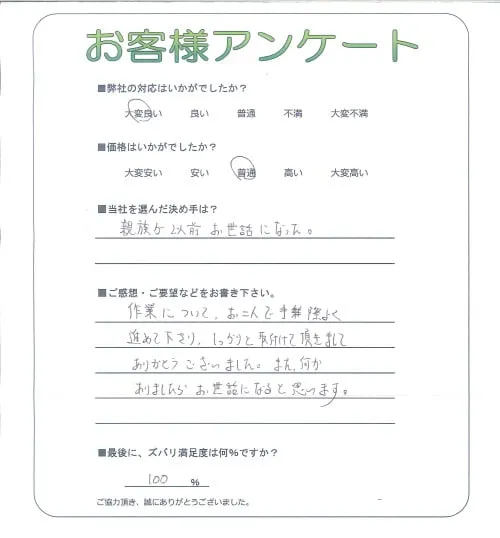 お客様アンケート
■弊社の対応はいかがでしたか？
大変良い 良い 普通 不満 大変不満
■価格はいかがでしたか？
大変安い 安い 普通 高い 大変高い
■当社を選んだ決め手は？
親族が以前お世話になった。
■ご感想・ご要望などをお書き下さい。
作業について、お二人で手際よく
進めて下さり、しっかりと取付けて頂きまして
ありがとうございました。また、何か
ありましたらお世話になると思います。
■最後に、ズバリ満足度は何％ですか？
100 %
ご協力頂き、誠にありがとうございました。